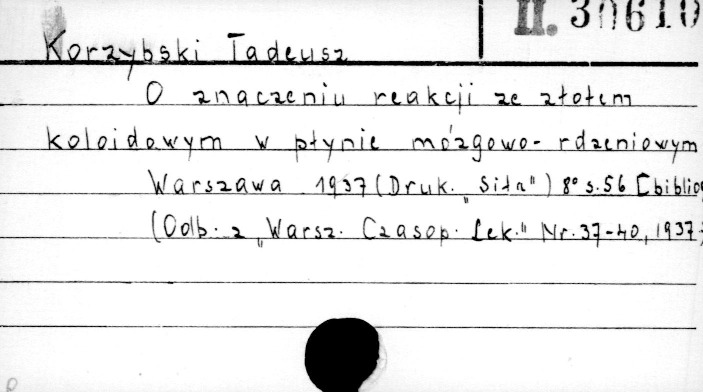 II. 30610
Korzybski Tadeusz
O znaczeniu reakcji ze złotem
koloidowym w płynie mózgowo-rdzeniowym
Warszawa 1937 (Druk. „Siła") 8° s. 56 [biblio
(Odb. z „Warsz. Czasop. Lek." Nr. 37-40, 1937